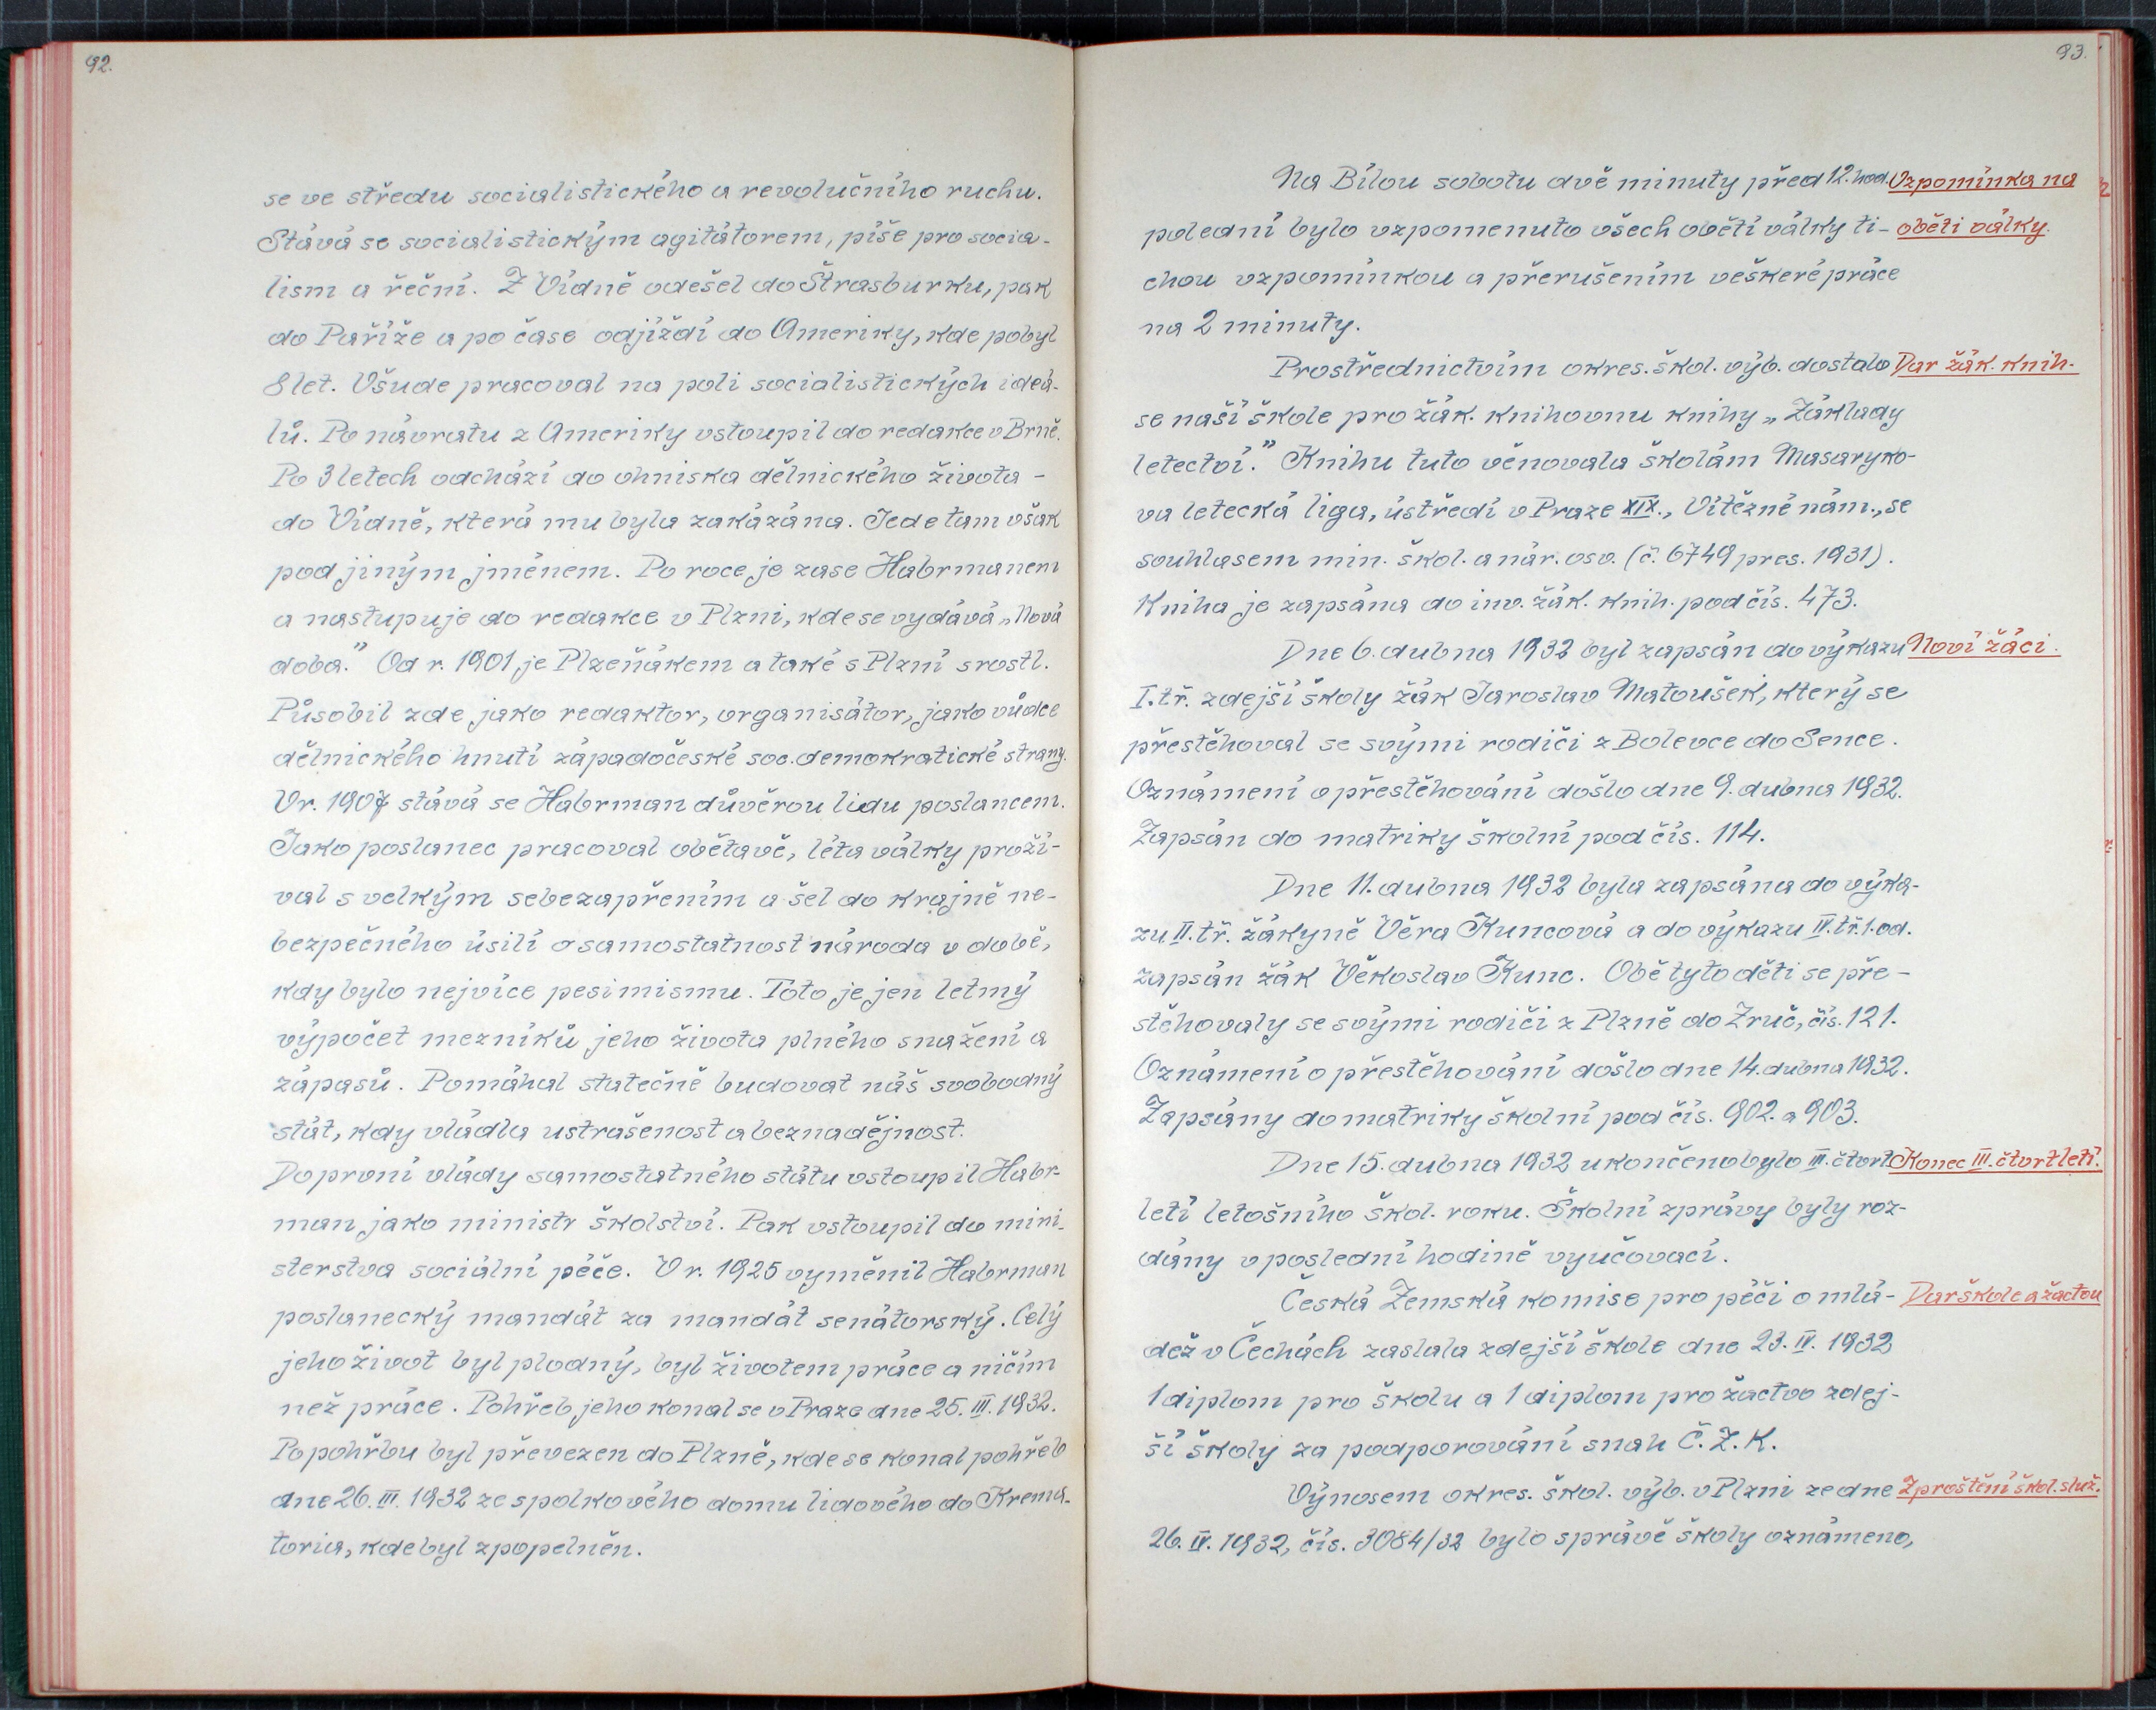 92.
se ve středu socialistického a revolučního ruchu.
Stává se socialistickým agitátorem, píše pro socia-
lism a řeční. Z Vídně odešel do Štrasburku, pak
do Paříže a po čase odjíždí do Ameriky, kde pobyl
8 let. Všude pracoval na poli socialistických ideá-
lů. Po návratu z Ameriky vstoupil do redakce v Brně.
Po 3 letech odchází do ohniska dělnického života -
do Vídně, která mu byla zakázána. Jede tam však
pod jiným jménem. Po roce je zase Habrmanem
a nastupuje do redakce v Plzni, kde se vydává „Nová
doba.” Od r. 1901 je Plzeňákem a také s Plzní srostl.
Působil zde jako redaktor, organisátor, jako vůdce
dělnického hnutí západočeské soc. demokratické strany.
V r. 1907 stává se Habrman důvěrou lidu poslancem.
Jako poslanec pracoval obětavě, léta války proží-
val s velkým sebezapřením a šel do krajně ne-
bezpečného úsilí o samostatnost národa v době,
kdy bylo nejvíce pesimismu. Toto je jen letmý
výpočet mezníků jeho života plného snažení a
zápasů. Pomáhal statečně budovat náš svobodný
stát, kdy vládla ustrašenost a beznadějnost.
Do první vlády samostatného státu vstoupil Habr-
man jako ministr školství. Pak vstoupil do mini-
sterstva sociální péče. V r. 1925 vyměnil Habrman
poslanecký mandát za mandát senátorský. Celý
jeho život byl plodný, byl životem práce a ničím
než práce. Pohřeb jeho konal se v Praze dne 25. III. 1932.
Po pohřbu byl převezen do Plzně, kde se konal pohřeb
dne 26. III. 1932 ze spolkového domu lidového do Krema-
toria, kde byl zpopelněn.
93.
Na Bílou sobotu dvě minuty před 12. hod. Vzpomínka na
polední bylo vzpomenuto všech obětí války ti- oběti války.
chou vzpomínkou a přerušením veškeré práce
na 2 minuty.
Prostřednictvím okres. škol. výb. dostalo Dar žák. knih.
se naší škole pro žák. knihovnu knihy „Základy
letectví.” Knihu tuto věnovala školám Masaryko-
va letecká liga, ústředí v Praze XIX., Vítězné nám., se
souhlasem min. škol. a nár. osv. (č. 6749 pres. 1931).
Kniha je zapsána do inv. žák. knih. pod čís. 473.
Dne 6. dubna 1932 byl zapsán do výkazu Noví žáci.
I. tř. zdejší školy žák Jaroslav Matoušek, který se
přestěhoval se svými rodiči z Bolevce do Sence.
Oznámení o přestěhování došlo dne 9. dubna 1932.
Zapsán do matriky školní pod čís. 114.
Dne 11. dubna 1932 byla zapsána do výka-
zu II. tř. žákyně Věra Kuncová a do výkazu IV. tř. 1. od.
zapsán žák Věkoslav Kunc. Obě tyto děti se pře-
stěhovaly se svými rodiči z Plzně do Zruč, čís. 121.
Oznámení o přestěhování došlo dne 14. dubna 1932.
Zapsány do matriky školní pod čís. 902. a 903.
Dne 15. dubna 1932 ukončeno bylo III. čtvrt Konec III. čtvrtletí.
letí letošního škol. roku. Školní zprávy byly roz-
dány v poslední hodině vyučovací.
Česká Zemská komise pro péči o mlá- Dar škole a žactvu
dež v Čechách zaslala zdejší škole dne 23. IV. 1932
1 diplom pro školu a 1 diplom pro žactvo zdej-
ší školy za podporování snah Č. Z. K.
Výnosem okres. škol. výb. v Plzni ze dne Zproštění škol. služ.
26. IV. 1932, čís. 3084/32 bylo správě školy oznámeno,